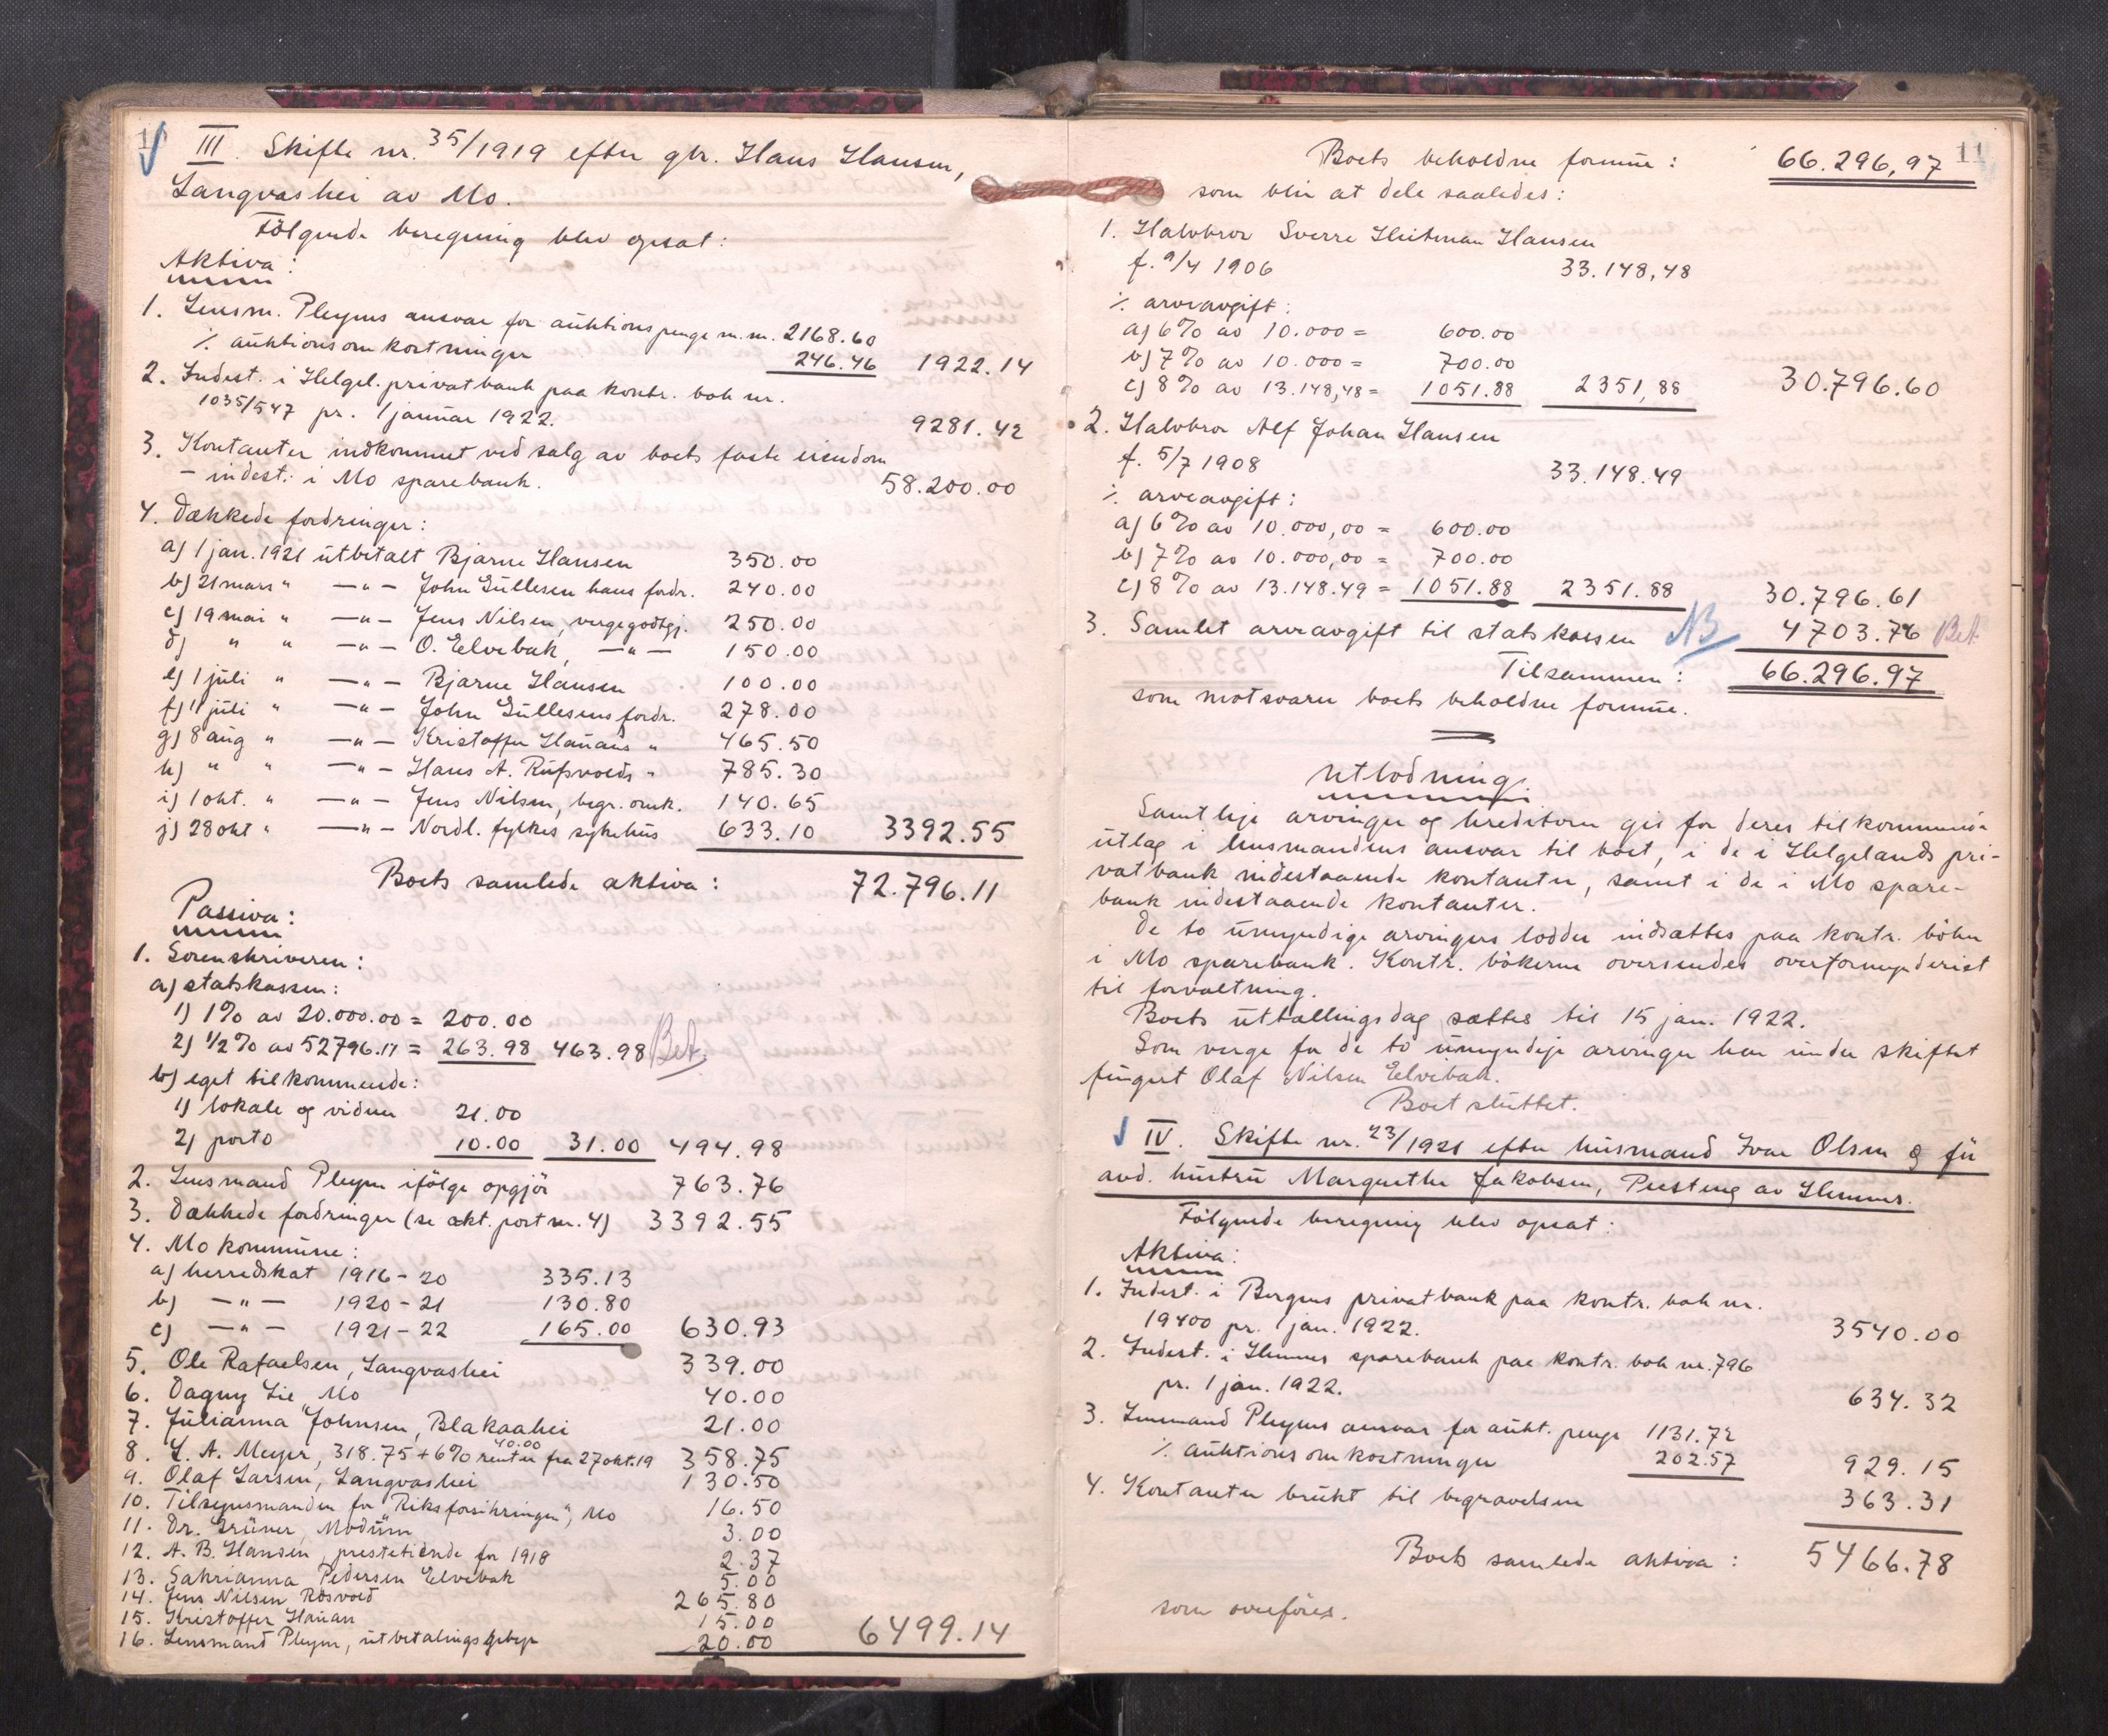 III. Skifte nr. 35/1919 efter gbr. Hans Hansen,
Langvashei av Mo.
Følgende beregning blev opsat:
Aktiva:
1. Lensm. Pleyms ansvar for auktionspenge m.m. 2168.60
% auktionsomkostninger 246.46 1922.14
2. Indest. i Helgel. privatbank paa kontr. bok nr.
1035/547 pr. 1 januar 1922. 9281.42
3. Kontanter indkommet ved salg av boets faste eiendom
- indest. i Mo sparebank. 58.200.00
4. Dækkede fordringer:
a) 1 jan. 1921 utbetalt Bjarne Hansen 350.00
b) 21 mars " —"— John Gullesen hans fordr. 240.00
c) 19 mai " —"— Jens Nilsen, vergegodtgj. 250.00
d) " " —"— O. Elvebak, —"— 150.00
e) 1 juli " —"— Bjarne Hansen 100.00
f) 11 juli " —"— John Gullesens fordr. 278.00
g) 8 aug " —"— Kristoffer Hauans " 465.50
h) " " —"— Hans A. Rufsvolds " 785.30
i) 1 okt. " —"— Jens Nilsen, begr. omk. 140.65
j) 28 okt " —"— Nordl. fylkes sykehus 633.10 3392.55
Boets samlede aktiva: 72.796.11
Passiva:
1. Sorenskriveren:
a) statskassen:
1) 1% av 20.000.00 = 200.00
2) 1/2% av 52796.11 = 263.98 463.98 Bet.
b) eget tilkommende:
1) lokale og vidner 21.00
2) porto 10.00 31.00 494.98
2. Lensmand Pleym ifølge opgjør 763.76
3. Dækkede fordringer (se akt. post nr. 4) 3392.55
4. Mo kommune:
a) herredskat 1916-20 335.13
b) —"— 1920-21 130.80
c) —"— 1921-22 165.00 630.93
5. Ole Rafaelsen, Langvashei 339.00
6. Dagny Lie, Mo 40.00
7. Julianna Johnsen, Blakaahei 21.00
8. L. A. Meyer, 318.75 + 6% renter 40.00 fra 27 okt. 19 358.75
9. Olaf Larsen, Langvashei 130.50
10. Tilsynsmanden for "Riksforsikringen", Mo 16.50
11. Dr. Grüner, Modum 3.00
12. A. B. Hansen, prestetiende for 1918 2.37
13. Sakrianna Pedersen Elvebak 5.00
14. Jens Nilsen Røsvold 265.80
15. Kristoffer Hauan 15.00
16. Lensmand Pleym, utbetalingsgebyr 20.00 6499.14
11
Boets beholdne formue: 66.296,97
som blir at dele saaledes:
1. Halvbror Sverre Heitman Hansen
f. 9/4 1906 33.148,48
% arveavgift:
a) 6% av 10.000 = 600.00
b) 7% av 10.000 = 700.00
c) 8% av 13.148,48 = 1051.88 2351,88 30.796.60
2. Halvbror Alf Johan Hansen
f. 5/7 1908 33.148.49
% arveavgift:
a) 6% av 10.000,00 = 600.00
b) 7% av 10.000,00 = 700.00
c) 8% av 13.148.49 = 1051.88 2351.88 30.796.61
3. Samlet arveavgift til statskassen NB 4703.76 Bet.
Tilsammen: 66.296.97
som motsvarer boets beholdne formue.
Utlodning.
Samtlige arvinger og kreditorer gis for deres tilkommende
utlæg i lensmandens ansvar til boet, i de i Helgelands pri-
vatbank indestaaende kontanter, samt i de i Mo spare-
bank indestaaende kontanter.
De to umyndige arvingers lodder indsættes paa kontr. bøker
i Mo sparebank. Kontr. bøkerne oversendes overformynderiet
til forvaltning.
Boets utbetalingsdag sættes til 15 jan. 1922.
Som verge for de to umyndige arvinger har under skiftet
fungert Olaf Nilsen Elvebak.
Boet sluttet.
IV. Skifte nr. 23/1921 efter husmand Ivar Olsen og før
avd. hustru Margrethe Jakobsen, av Hemnes.
Følgende beregning blev opsat:
Aktiva:
1. Indest. i Bergens privatbank paa kontr. bok nr.
19400 pr. 1 jan. 1922. 3540.00
2. Indest. i Hemnes sparebank paa kontr. bok nr. 796
pr. 1 jan. 1922. 634.32
3. Lensmand Pleyms ansvar for aukt. penge 1131.72
% auktionsomkostninger 202.57 929.15
4. Kontanter brukt til begravelsen 363.31
Boets samlede aktiva: 5466.78
som overføres.